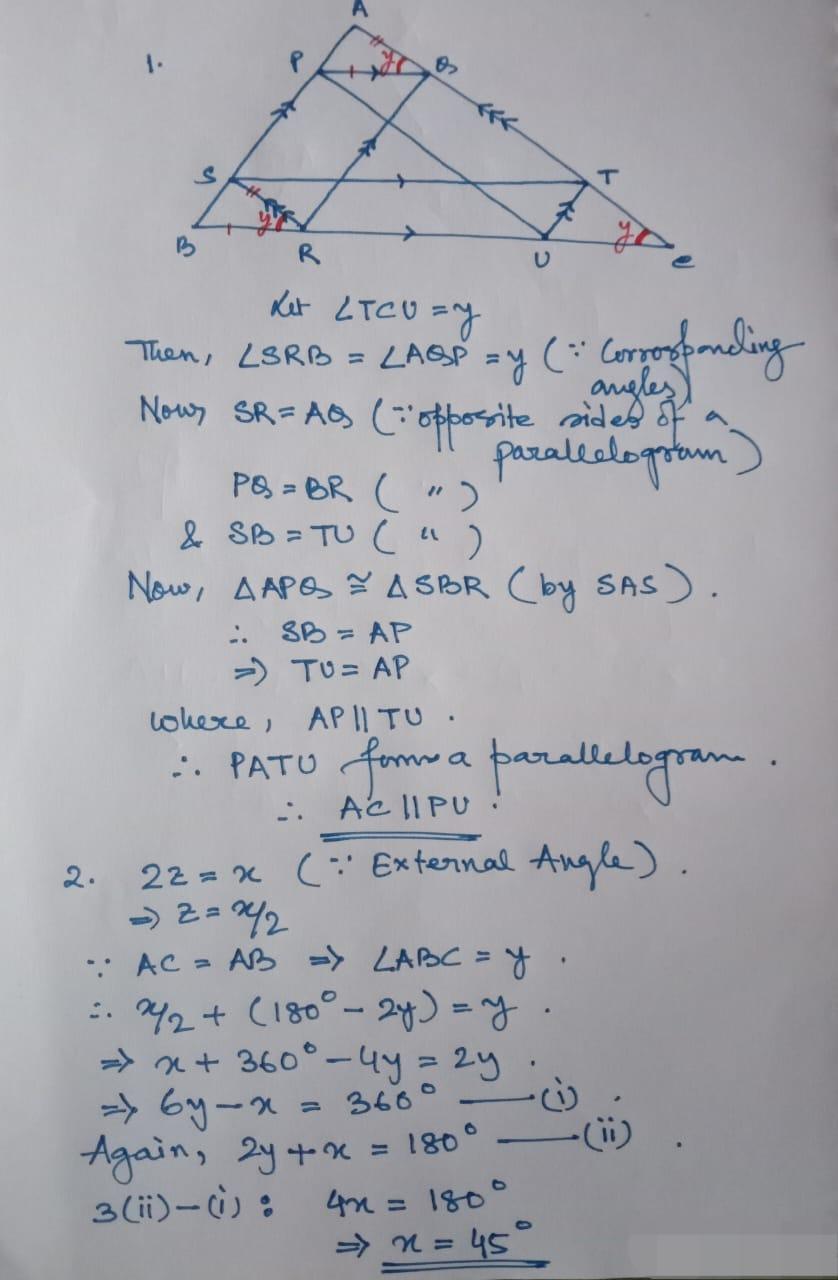 1.
A
P
y
Q
S
T
B
y
R
U
y
C
Let ∠TCU = y
Then, ∠SRB = ∠AQP = y (∵ Corrosponding
angles)
Now, SR = AQ (∵ opposite sides of a
parallelogram)
PQ = BR ( " )
& SB = TU ( " )
Now, △APQ ≅ △SBR (by SAS).
∴ SB = AP
⇒ TU = AP
where, AP || TU.
∴ PATU forms a parallelogram.
∴ AC || PU.
2. 2z = x (∵ External Angle).
⇒ z = x/2
∵ AC = AB ⇒ ∠ABC = y.
∴ x/2 + (180° − 2y) = y.
⇒ x + 360° − 4y = 2y.
⇒ 6y − x = 360° —— (i).
Again, 2y + x = 180° —— (ii).
3(ii) − (i) : 4x = 180°
⇒ x = 45°